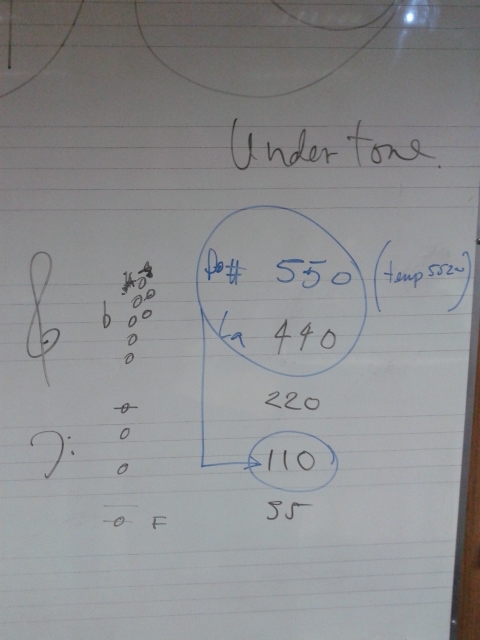 Undertone.
Do# 550 (temp 552~)
b La 440
220
110
F 55